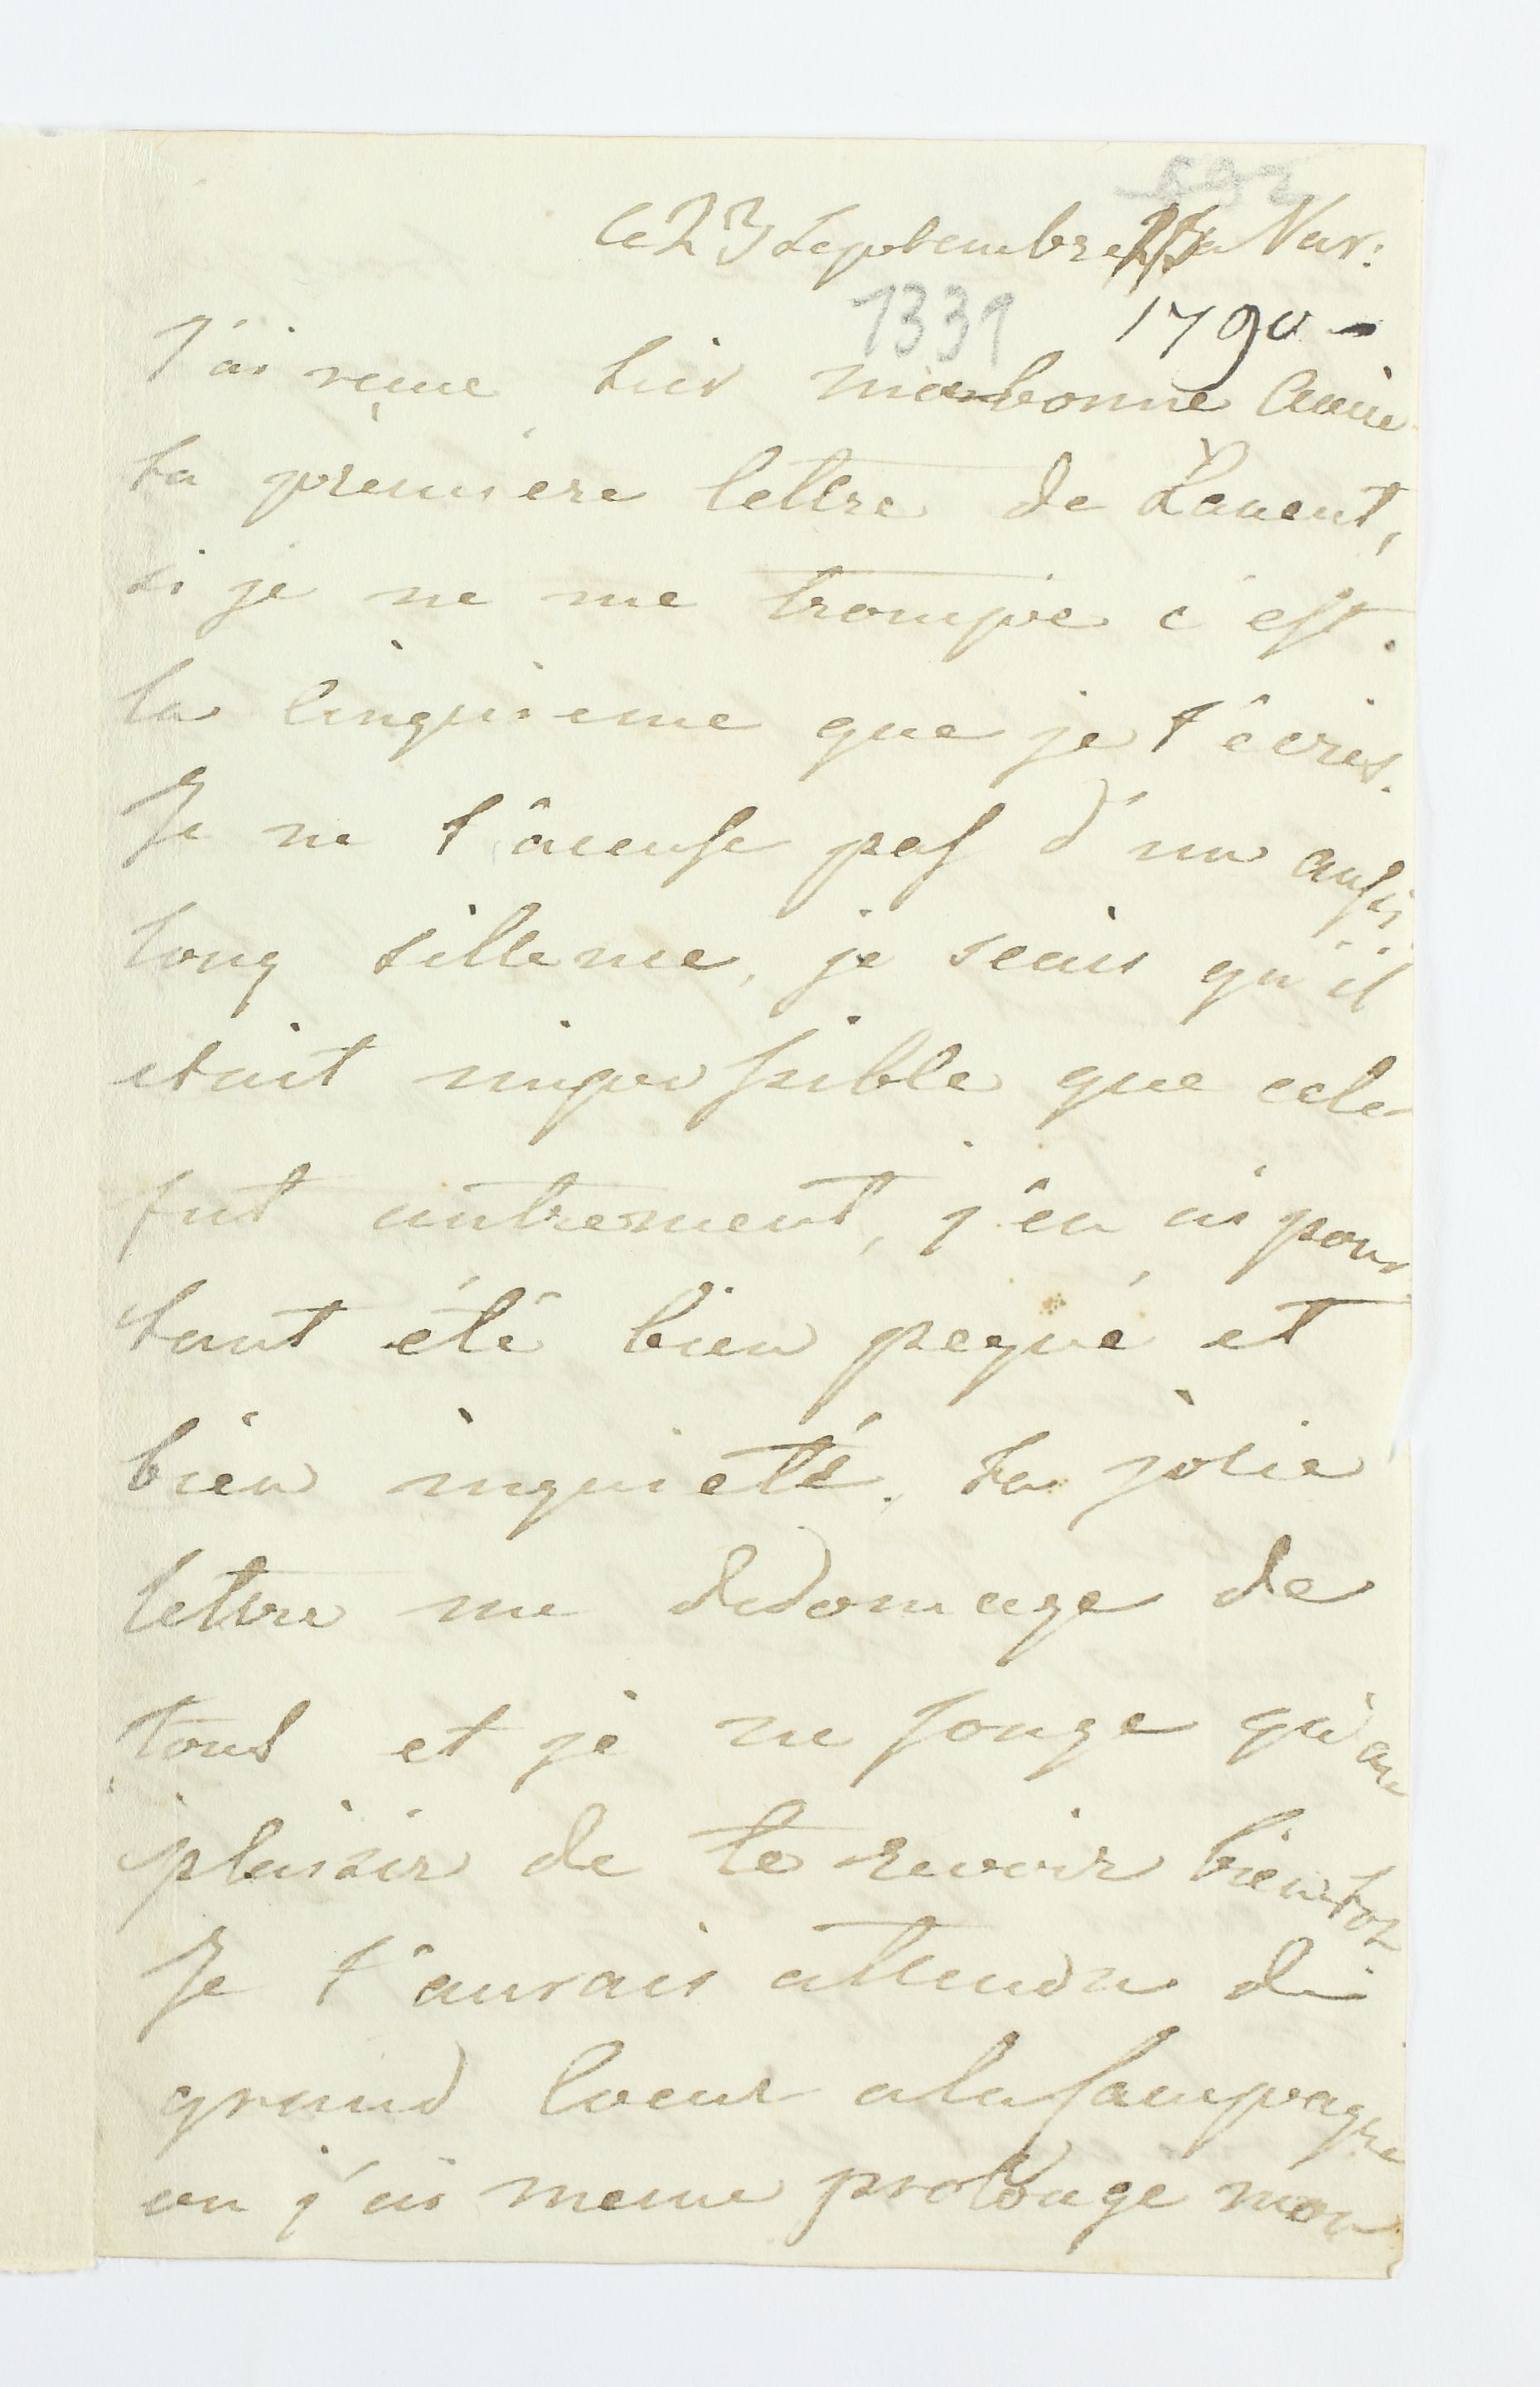 692
ce 23 Septembre a Var:
1339 1790 -
J'ai reçue hier ma bonne Amie
ta premiere lettre de Lancut,
si je ne me trompe c'est
la Cinquieme que je t'écris.
Je ne t'accuse pas d'un aussi
long sillence, je scais qu'il
etait impossible que cela
fut autrement, j'en ai pour
tant été bien pequé et
bien inquieté. ta jolie
lettre me dedomage de
tout et je ne songe qu'au
plaisir de te revoir bientot
Je t'aurais attendu de
grand Coeur a la Campagne
ou j'ai meme prolongé mon